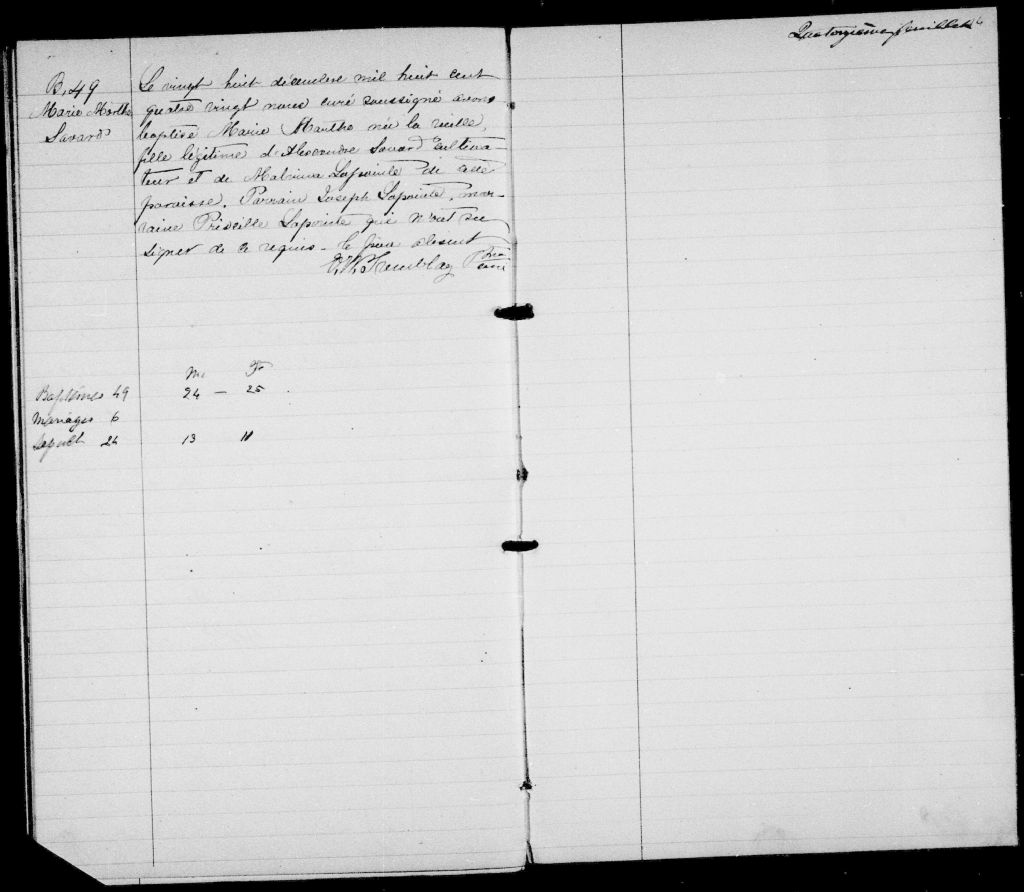 B. 49
Marie Marthe
Savard
Le vingt huit décembre mil huit cent
quatre vingt nous curé soussigné avons
baptisé Marie Marthe née la veille,
fille légitime d'Alexandre Savard Cultiva-
teur et de Malvina Lapointe de cette
paroisse. Parrain Joseph Lapointe, mar-
raine Priscille Lapointe qui n'ont su
signer de ce requis. le père absent
Tremblay Ptre
curé
M. F.
Baptêmes 49 24 — 25
Mariages 6
Sepult 24 13 11
Quatorzième feuillet